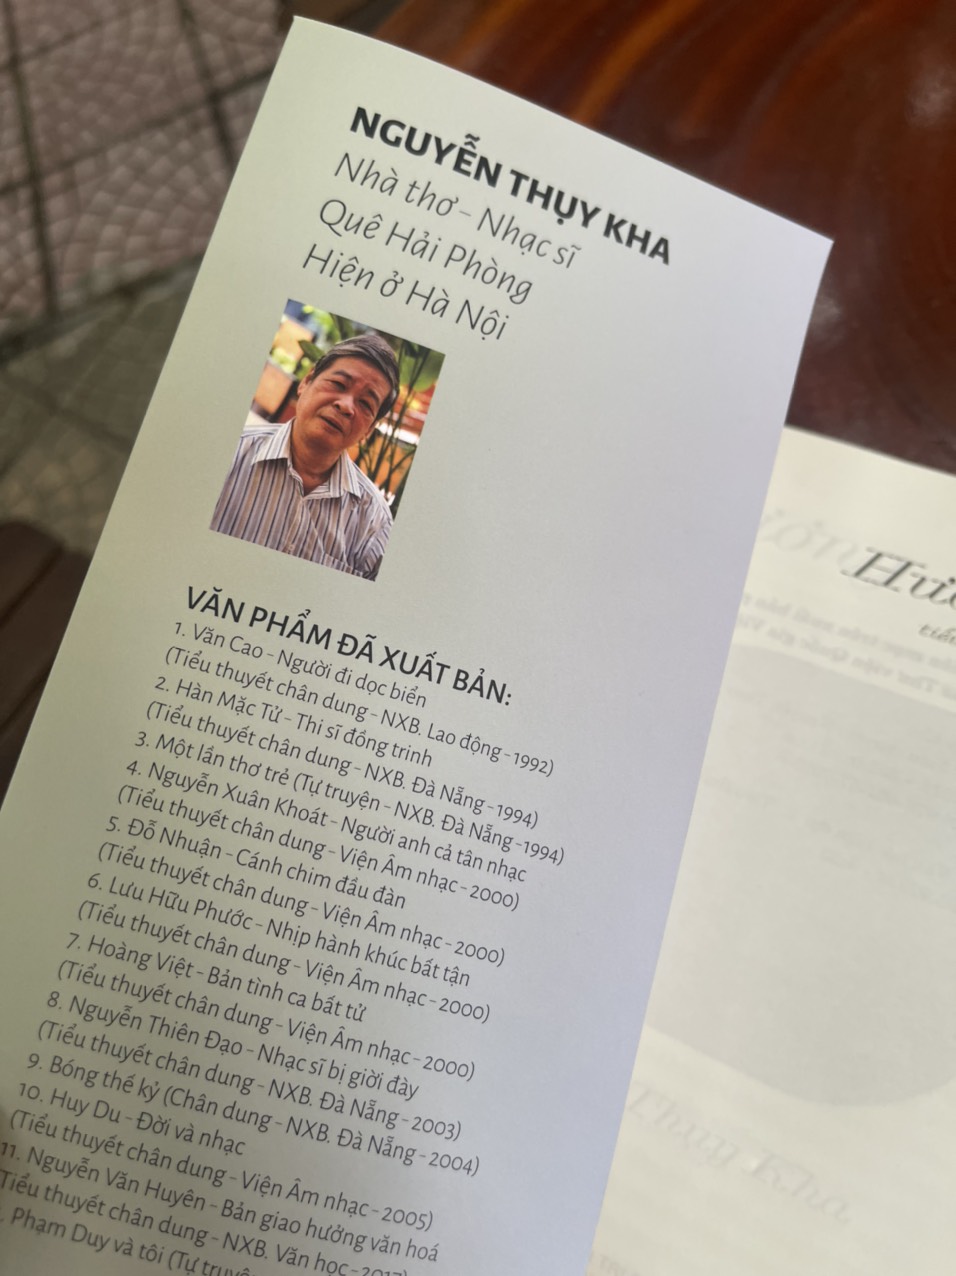 NGUYỄN THỤY KHA
Nhà thơ - Nhạc sĩ
Quê Hải Phòng
Hiện ở Hà Nội
VĂN PHẨM ĐÃ XUẤT BẢN:
1. Văn Cao - Người đi dọc biển
(Tiểu thuyết chân dung - NXB. Lao động - 1992)
2. Hàn Mặc Tử - Thi sĩ đồng trinh
(Tiểu thuyết chân dung - NXB. Đà Nẵng - 1994)
3. Một lần thơ trẻ (Tự truyện - NXB. Đà Nẵng - 1994)
4. Nguyễn Xuân Khoát - Người anh cả tân nhạc
(Tiểu thuyết chân dung - Viện Âm nhạc - 2000)
5. Đỗ Nhuận - Cánh chim đầu đàn
(Tiểu thuyết chân dung - Viện Âm nhạc - 2000)
6. Lưu Hữu Phước - Nhịp hành khúc bất tận
(Tiểu thuyết chân dung - Viện Âm nhạc - 2000)
7. Hoàng Việt - Bản tình ca bất tử
(Tiểu thuyết chân dung - Viện Âm nhạc - 2000)
8. Nguyễn Thiên Đạo - Nhạc sĩ bị giời đày
(Tiểu thuyết chân dung - NXB. Đà Nẵng - 2003)
9. Bóng thế kỷ (Chân dung - NXB. Đà Nẵng - 2004)
10. Huy Du - Đời và nhạc
(Tiểu thuyết chân dung - Viện Âm nhạc - 2005)
11. Nguyễn Văn Huyên - Bản giao hưởng văn hoá
Tiểu thuyết chân dung - NXB. Văn học - 2017)
. Phạm Duy và tôi (Tự truyện